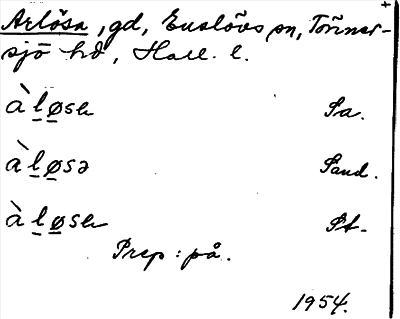 Arlösa, gd, Enslövs sn, Tönner-
sjö hd, Hall. l.
àl̲ø̲sa Sa.
àl̲ø̲sə Sand.
àl̲ø̲sa St.
Prep: på.
1954.